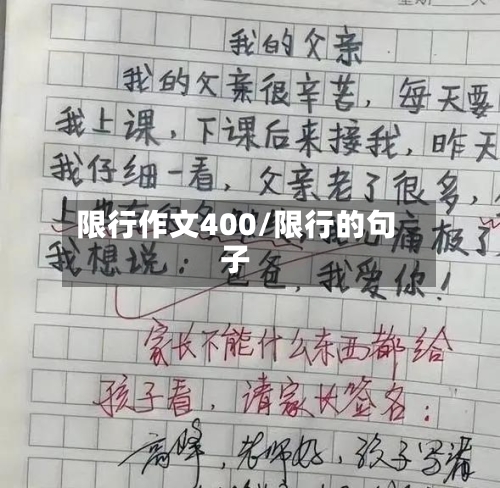 我的父亲
我的父亲很辛苦，每天要
我上课，下课后来接我，昨天
我仔细一看，父亲老了很多，
限行作文400/限行的句
子
痛极了
我想说：爸爸，我爱你！
家长不能什么东西都给
孩子看，请家长签名：
高峰，老师好，孩子写